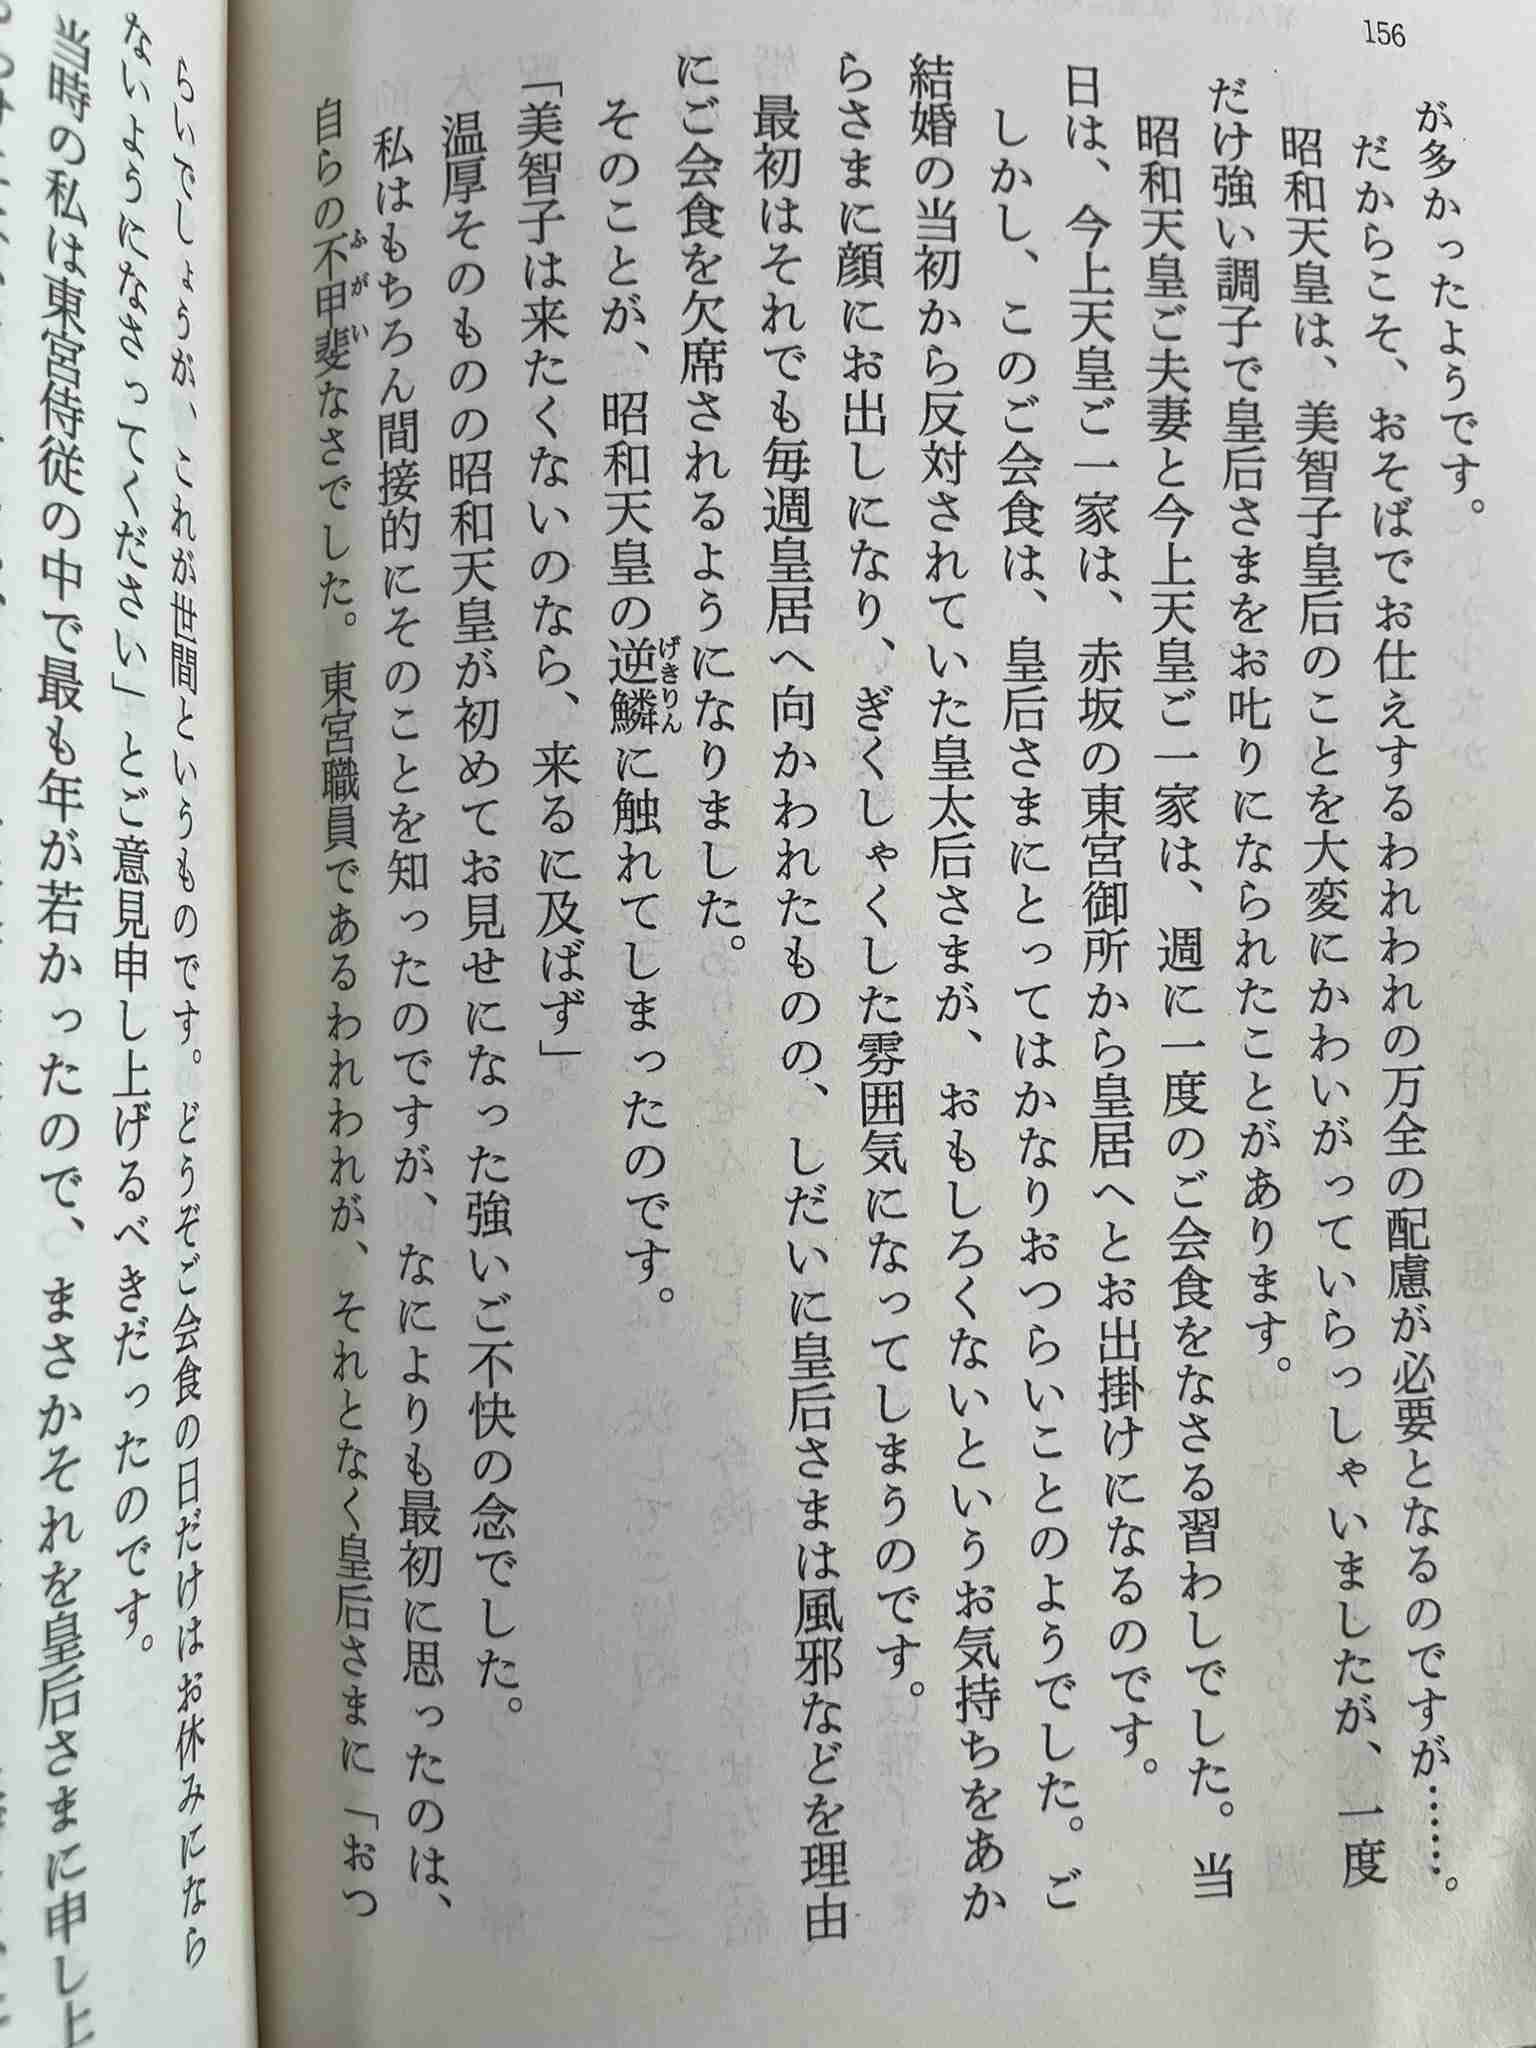 156
が多かったようです。
だからこそ、おそばでお仕えするわれわれの万全の配慮が必要となるのですが……。
昭和天皇は、美智子皇后のことを大変にかわいがっていらっしゃいましたが、一度
だけ強い調子で皇后さまをお叱りになられたことがあります。
昭和天皇ご夫妻と今上天皇ご一家は、週に一度のご会食をなさる習わしでした。当
日は、今上天皇ご一家は、赤坂の東宮御所から皇居へとお出掛けになるのです。
しかし、このご会食は、皇后さまにとってはかなりおつらいことのようでした。ご
結婚の当初から反対されていた皇太后さまが、おもしろくないというお気持ちをあか
らさまに顔にお出しになり、ぎくしゃくした雰囲気になってしまうのです。
最初はそれでも毎週皇居へ向かわれたものの、しだいに皇后さまは風邪などを理由
にご会食を欠席されるようになりました。
そのことが、昭和天皇の逆鱗げきりんに触れてしまったのです。
「美智子は来たくないのなら、来るに及ばず」
温厚そのものの昭和天皇が初めてお見せになった強いご不快の念でした。
私はもちろん間接的にそのことを知ったのですが、なによりも最初に思ったのは、
自らの不甲斐ふがいなさでした。東宮職員であるわれわれが、それとなく皇后さまに「おつ
らいでしょうが、これが世間というものです。どうぞご会食の日だけはお休みになら
ないようになさってください」とご意見申し上げるべきだったのです。
当時の私は東宮侍従の中で最も年が若かったので、まさかそれを皇后さまに申し上